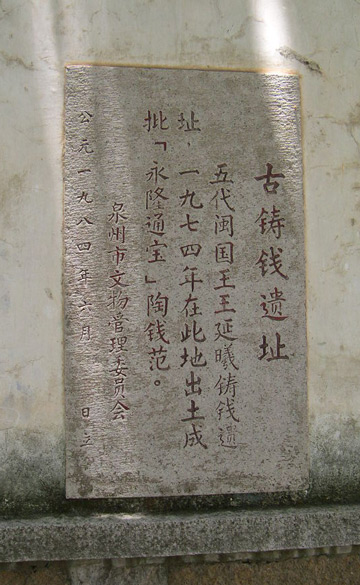 古铸钱遗址
五代闽国王王延曦铸钱遗
址，一九七四年在此地出土成
批「永隆通宝」陶钱范。
泉州市文物管理委员会
公元一九八四年六月 日立